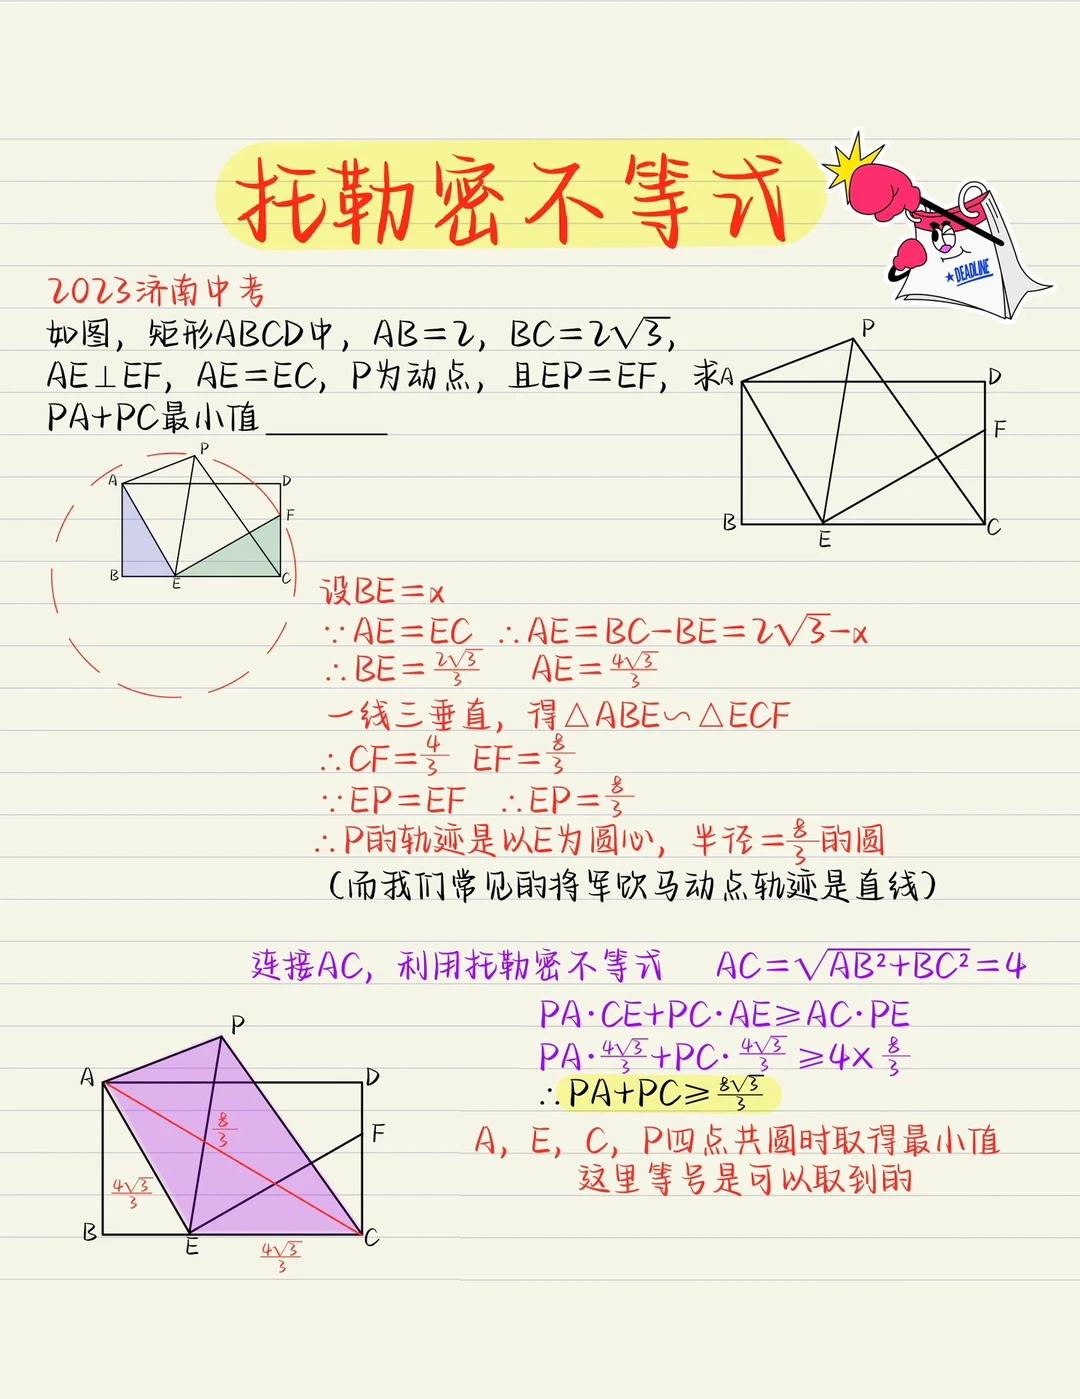 托勒密不等式
DEADLINE
2023济南中考
如图，矩形ABCD中，AB=2，BC=2√3，
AE⊥EF，AE=EC，P为动点，且EP=EF，求
PA+PC最小值______
P
A
D
F
B
E
C
P
A
D
F
B
E
C
设BE=x
∵AE=EC ∴AE=BC-BE=2√3-x
∴BE=2√3/3 AE=4√3/3
一线三垂直，得△ABE∽△ECF
∴CF=4/3 EF=8/3
∵EP=EF ∴EP=8/3
∴P的轨迹是以E为圆心，半径=8/3的圆
（而我们常见的将军饮马动点轨迹是直线）
连接AC，利用托勒密不等式 AC=√AB²+BC²=4
PA·CE+PC·AE≥AC·PE
PA·4√3/3+PC·4√3/3≥4×8/3
∴PA+PC≥8√3/3
A，E，C，P四点共圆时取得最小值
这里等号是可以取到的
P
A
D
8/3
F
4√3/3
B
E
C
4√3/3